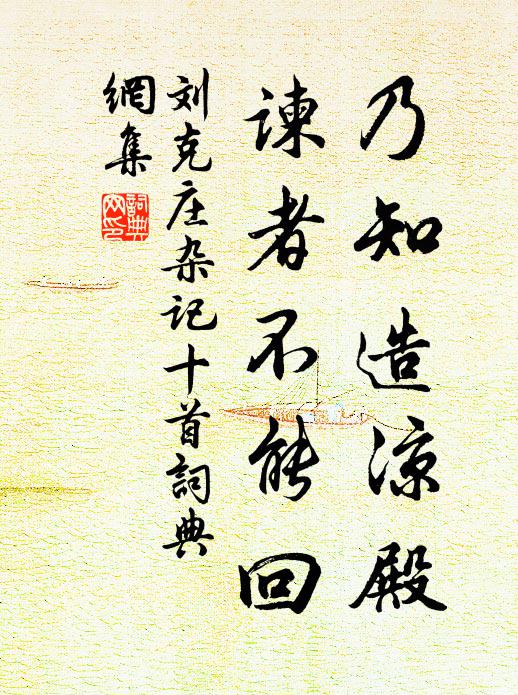 乃知造凉殿
諫者不能回
刘克庄杂记十首詞典
網集
詞典
网印